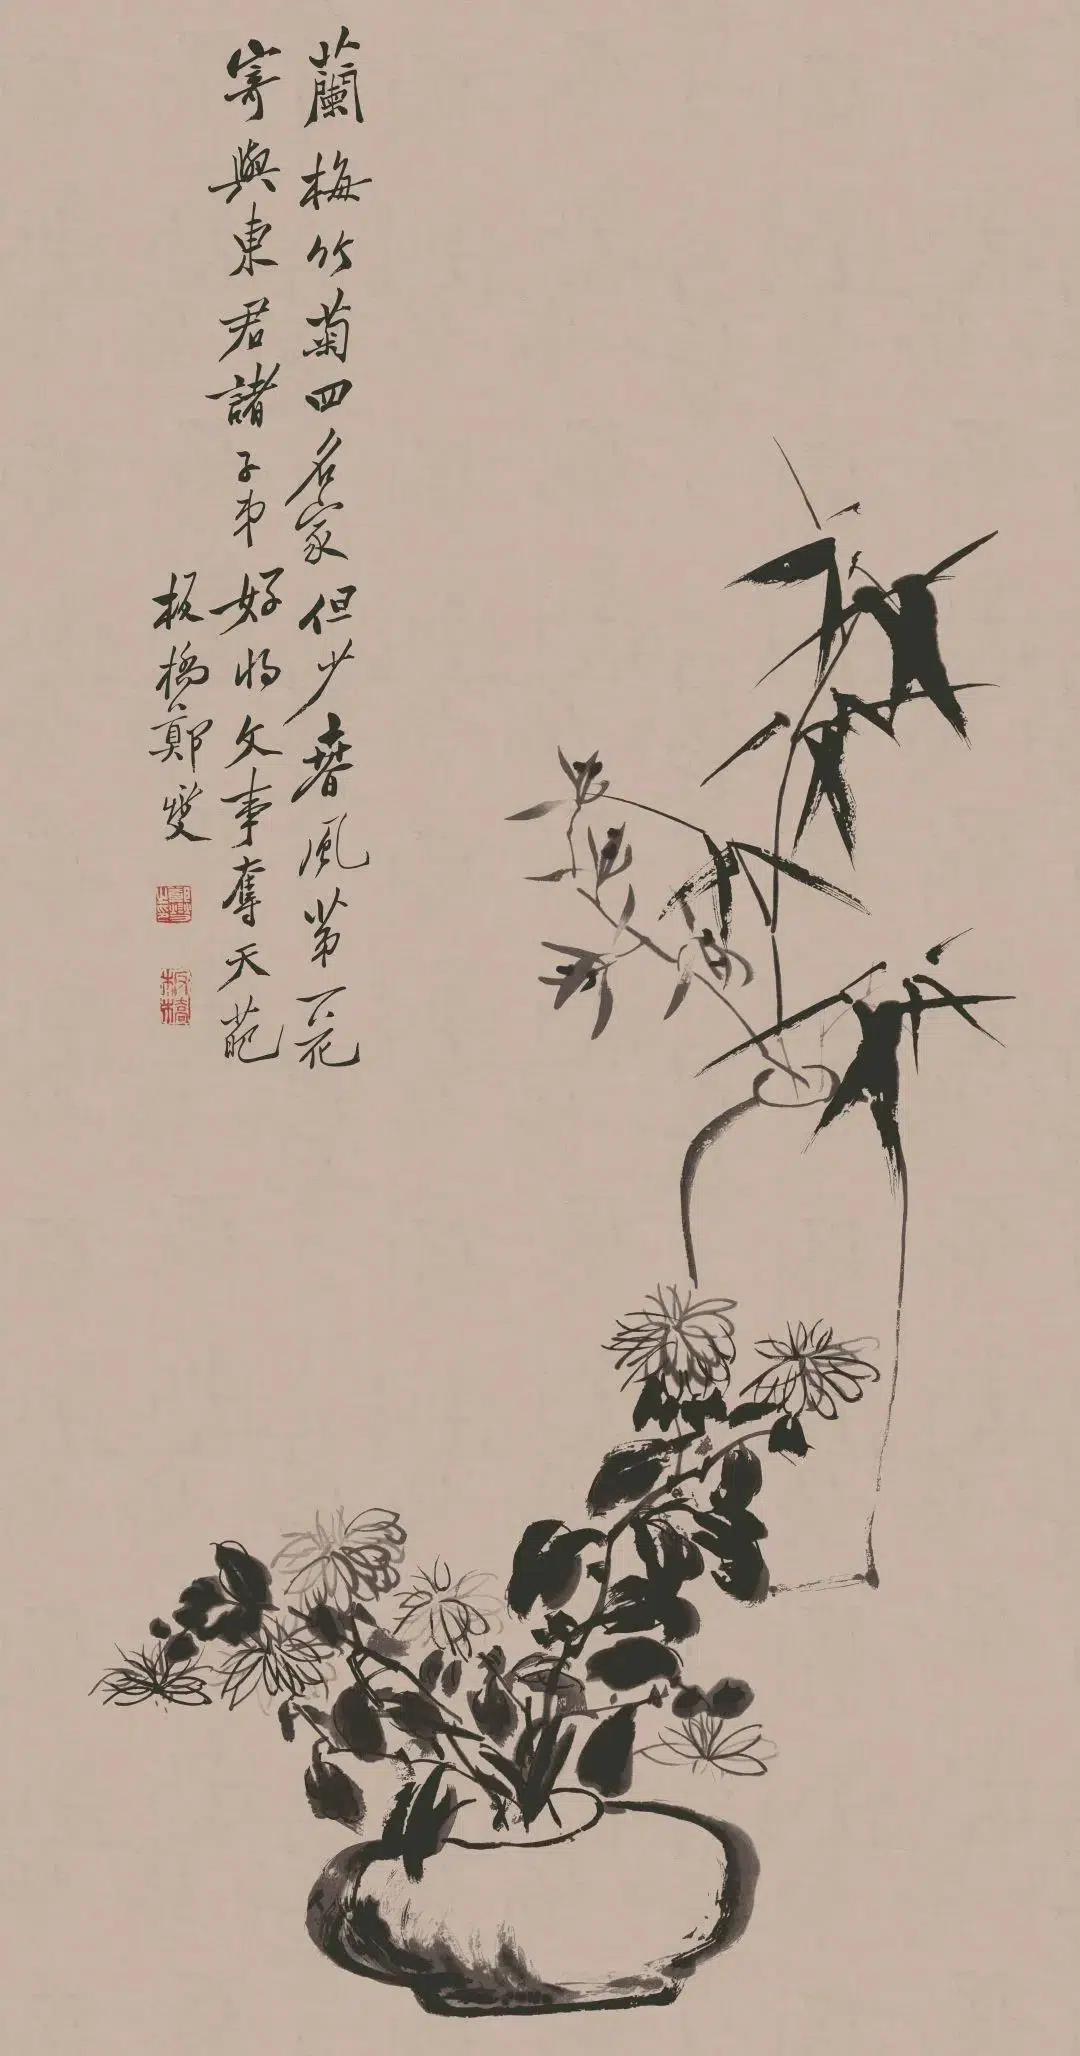 蘭梅竹菊四名家但少春風第一花
寄與東君諸子弟好將文事奪天葩
板橋鄭燮
鄭燮之印
板橋